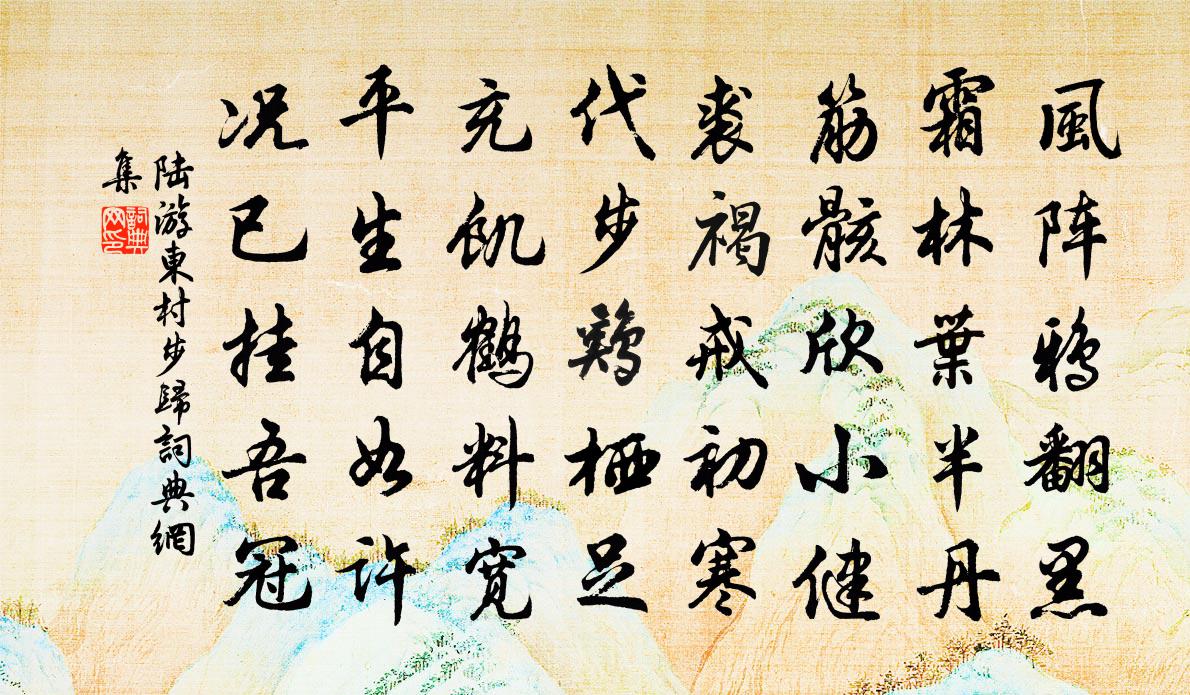 風阵鴉翻黑
霜林葉半丹
筋骸欣小健
裘褐戒初寒
代步鷄栖足
充飢鶴料寬
平生自如许
况已挂吾冠
陆游東村步歸詞典網
集
詞典网印